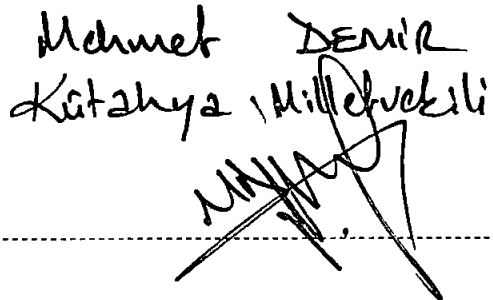 Mehmet DEMİR
Kütahya Milletvekili